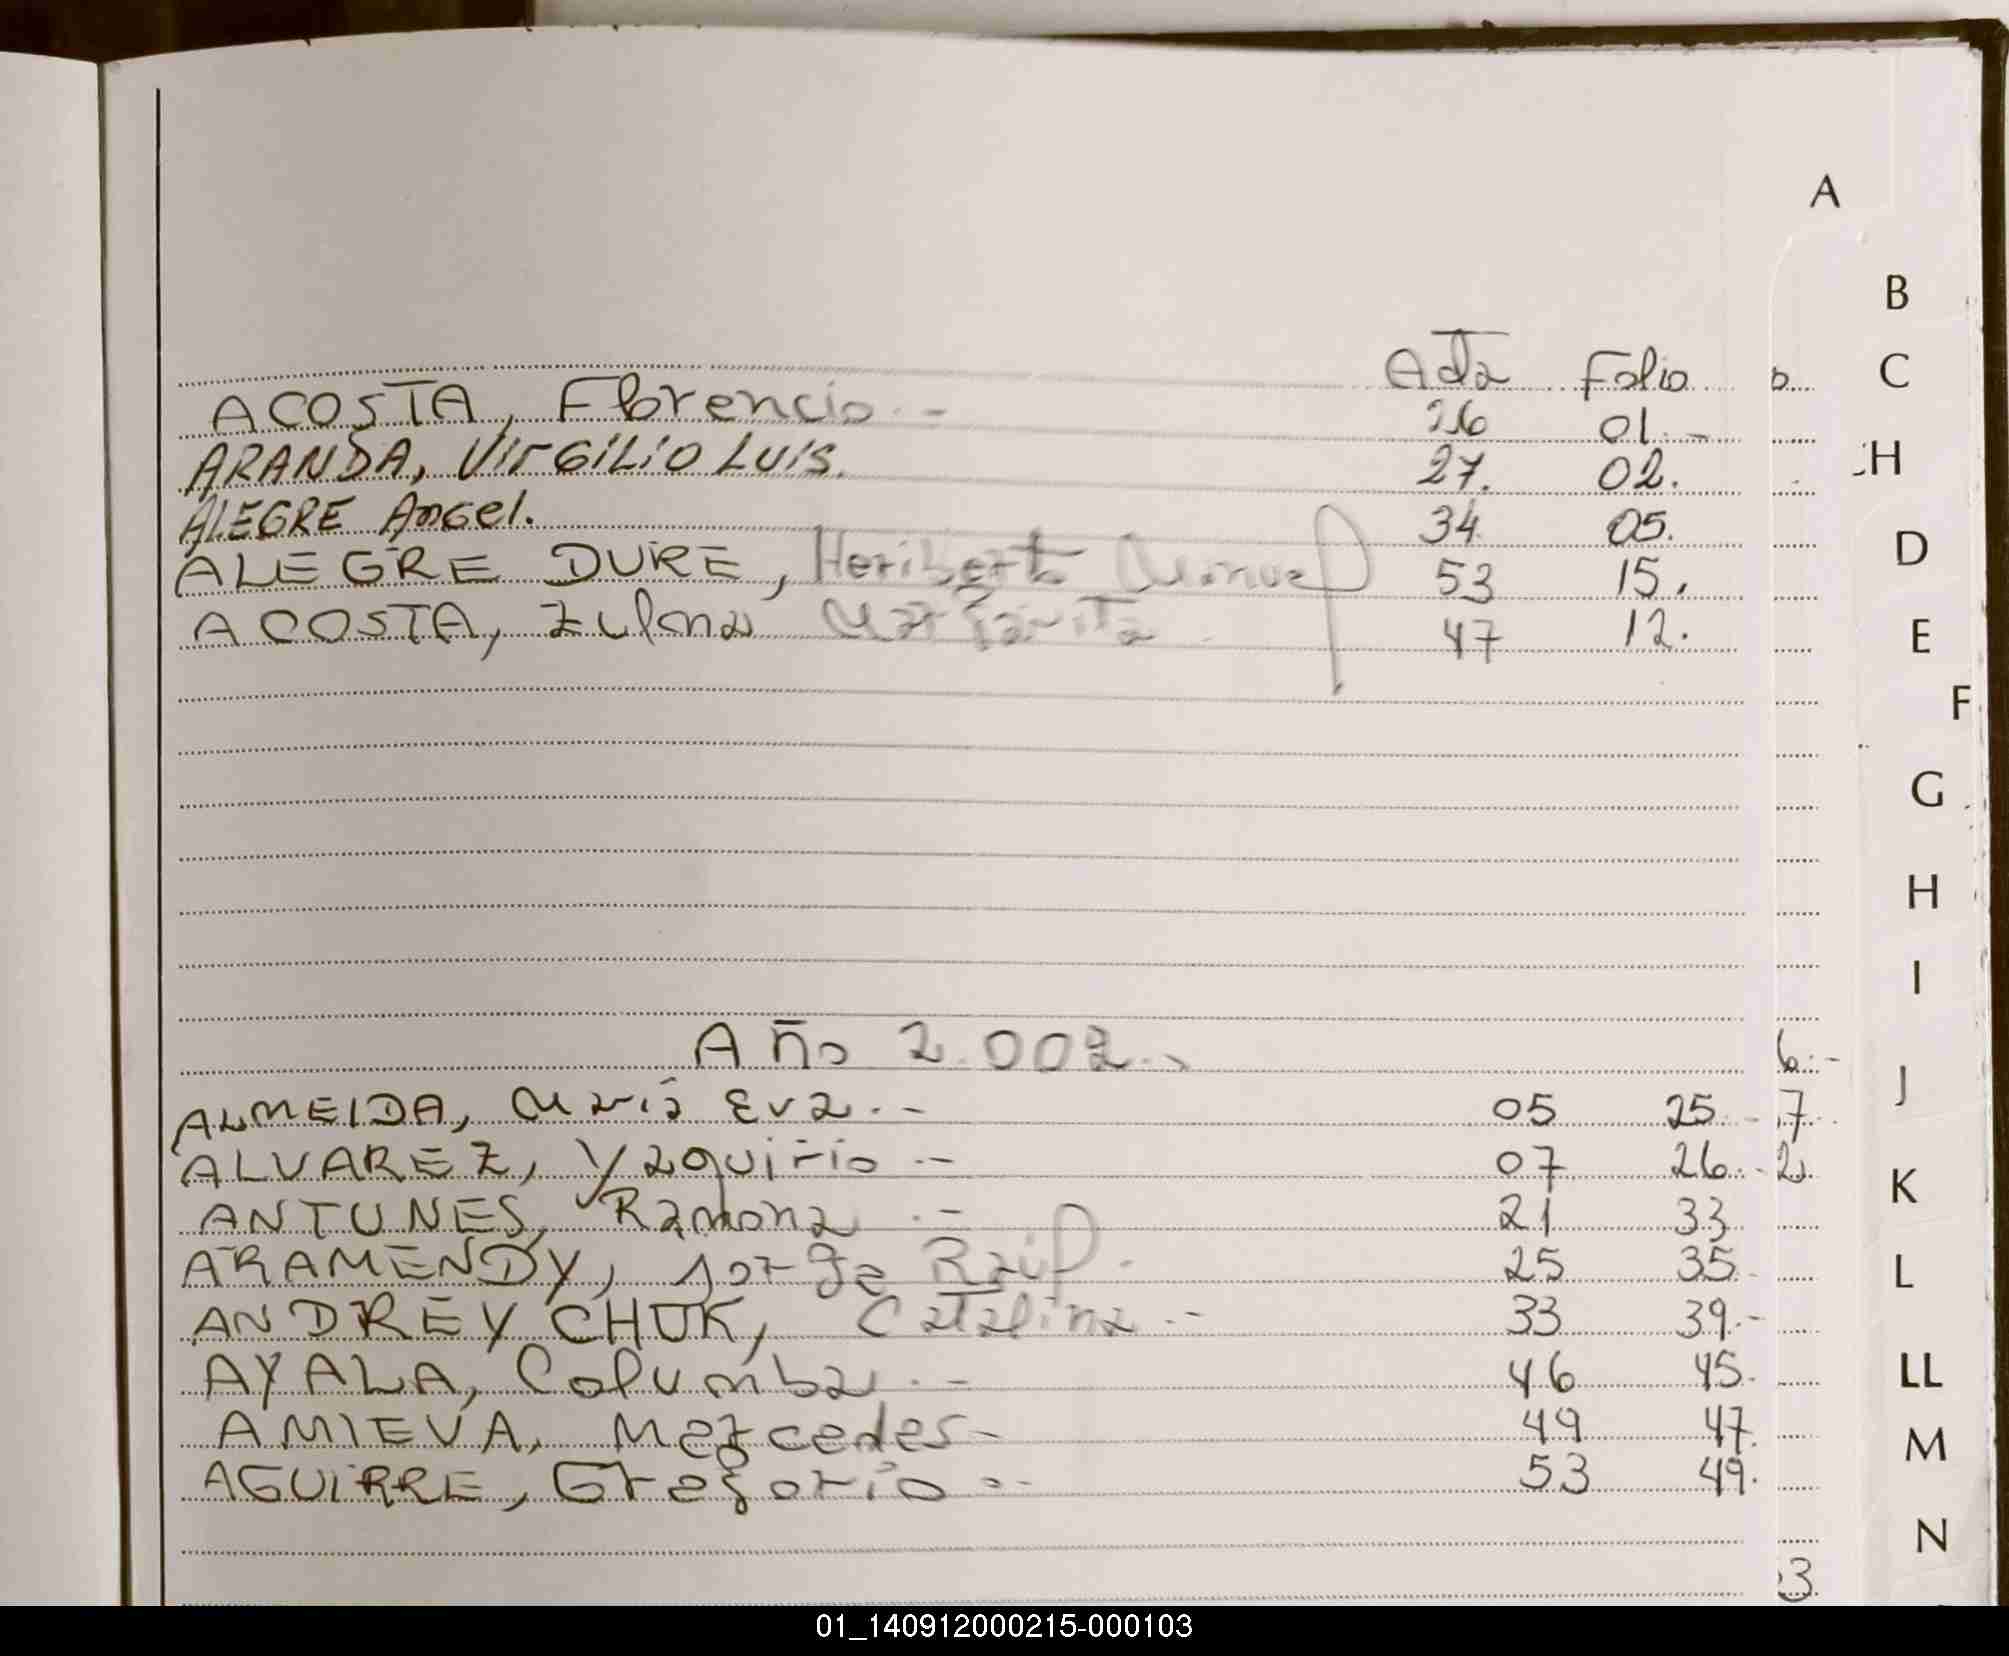 A
B
Acta Folio
C
ACOSTA, Florencio.- 26 01.-
ARANDA, VirGiLiO LUiS. 27. 02.
H
ALEGRE AnGel. 34 05.
D
ALEGRE DURE, Heriberto Manuel 53 15.
ACOSTA, Zulma Margarita 47 12.
E
F
G
H
I
Año 2.002.-
J
ALMEIDA, María Eva.- 05 25.- 7
ALVAREZ, Yaquirio.- 07 26.- 2
K
ANTUNES, Ramona.- 21 33
ARAMENDY, Jorge Raúl. 25 35
L
ANDREYCHUK, Catalina.- 33 39.-
AYALA, Columba.- 46 45.
LL
AMIEVA, Mercedes- 49 47.
M
AGUIRRE, Gregorio.- 53 49.
N
3
01_140912000215-000103